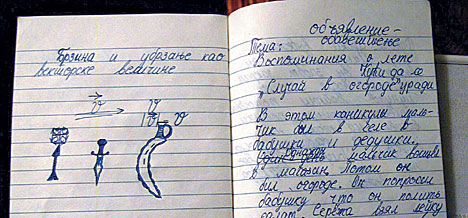 Брзина и убрзање као
векторске величине
v
v
v
объявление -
обавештење
Тема:
Воспоминания о лете
"Случай в огороде"
В этом каникулы маль-
чик был в селе в
бабушки и дедушки.
мальчик вошел
в магазин. Потом он
был огороде. Он попросил
бабушку что он полить
салат. Серёжа взял лейку